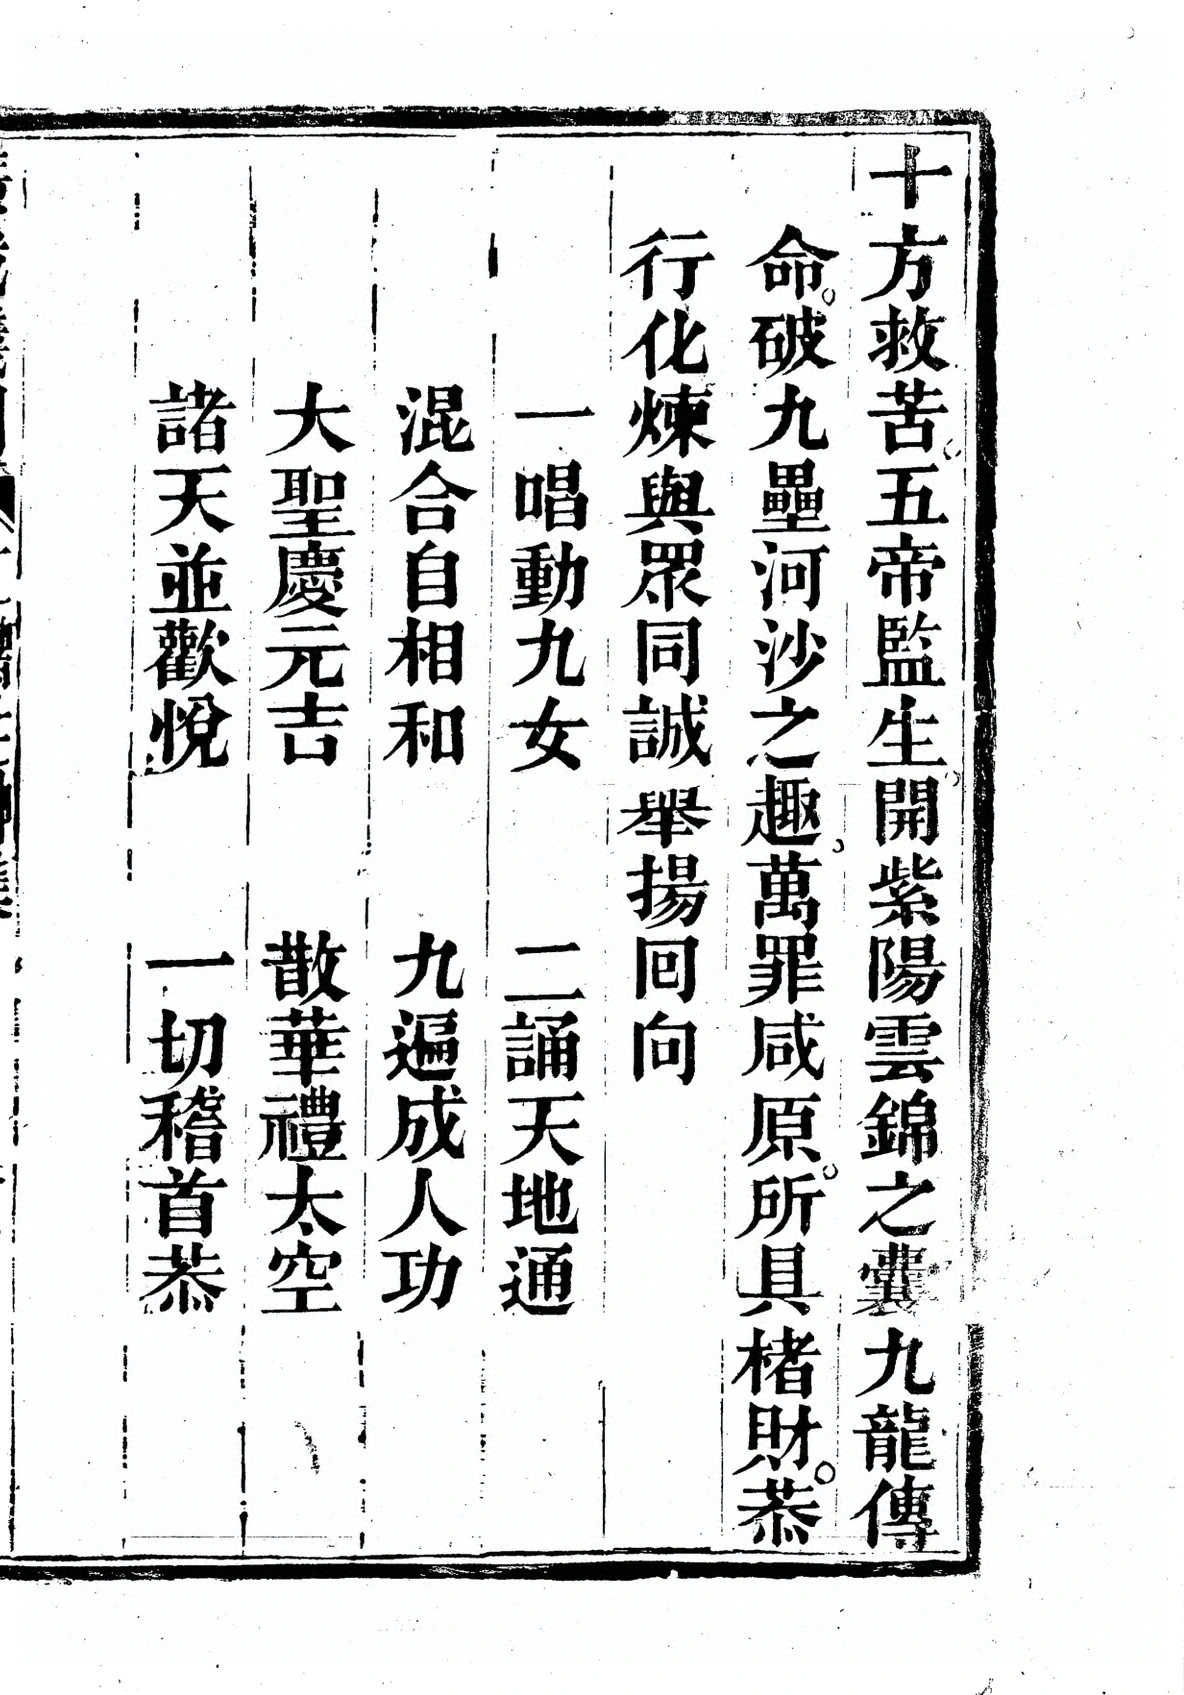 十方救苦。五帝監生。開紫陽雲錦之囊九龍傳
命。破九壘河沙之趣。萬罪咸原。所具楮財。恭
行化煉與眾同誠舉揚回向
一唱動九女　二誦天地通
混合自相和　九遍成人功
大聖慶元吉　散華禮太空
諸天並歡悅　一切稽首恭